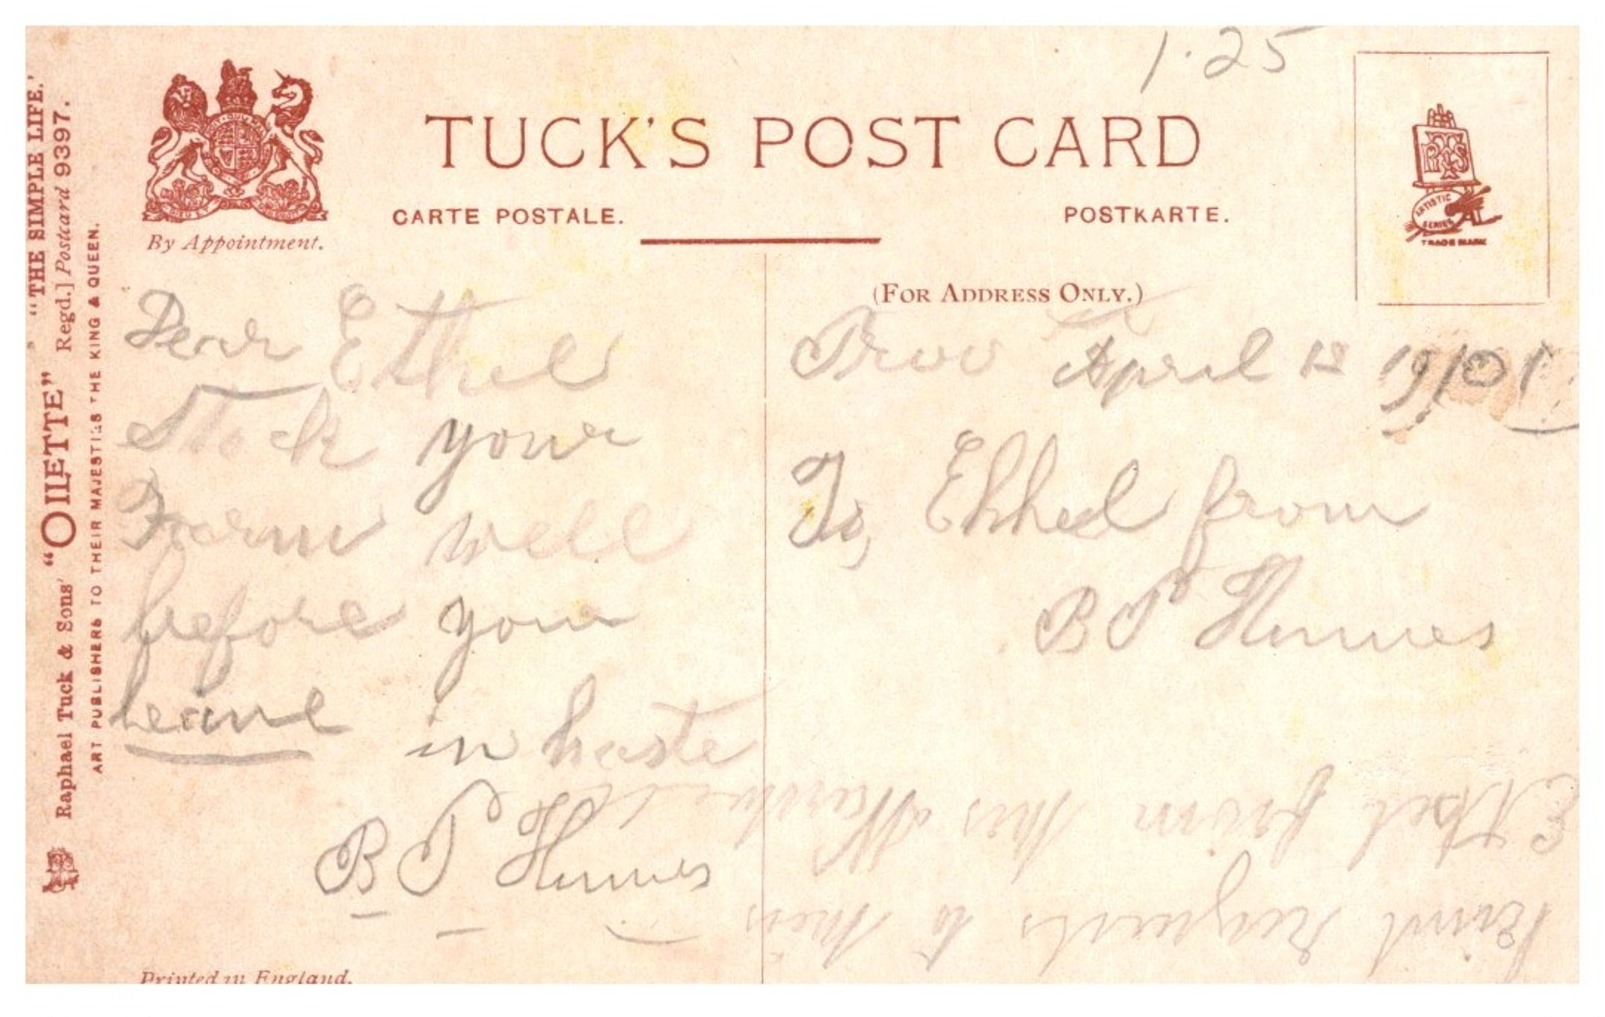 1.25
TUCK'S POST CARD
CARTE POSTALE. POSTKARTE.
By Appointment.
(FOR ADDRESS ONLY.)
"THE SIMPLE LIFE."
Raphael Tuck & Sons' "OILETTE" Regd.] Postcard 9397.
ART PUBLISHERS TO THEIR MAJESTIES THE KING & QUEEN.
ARTISTIC
SERIES
TRADE MARK
Dear Ethel
Stock your
Farm well
before you
leave in haste
B T Himes
April 12
To, Ethel from
B T Himes
Kind Reguards to Miss
Ethel from
Printed in England.